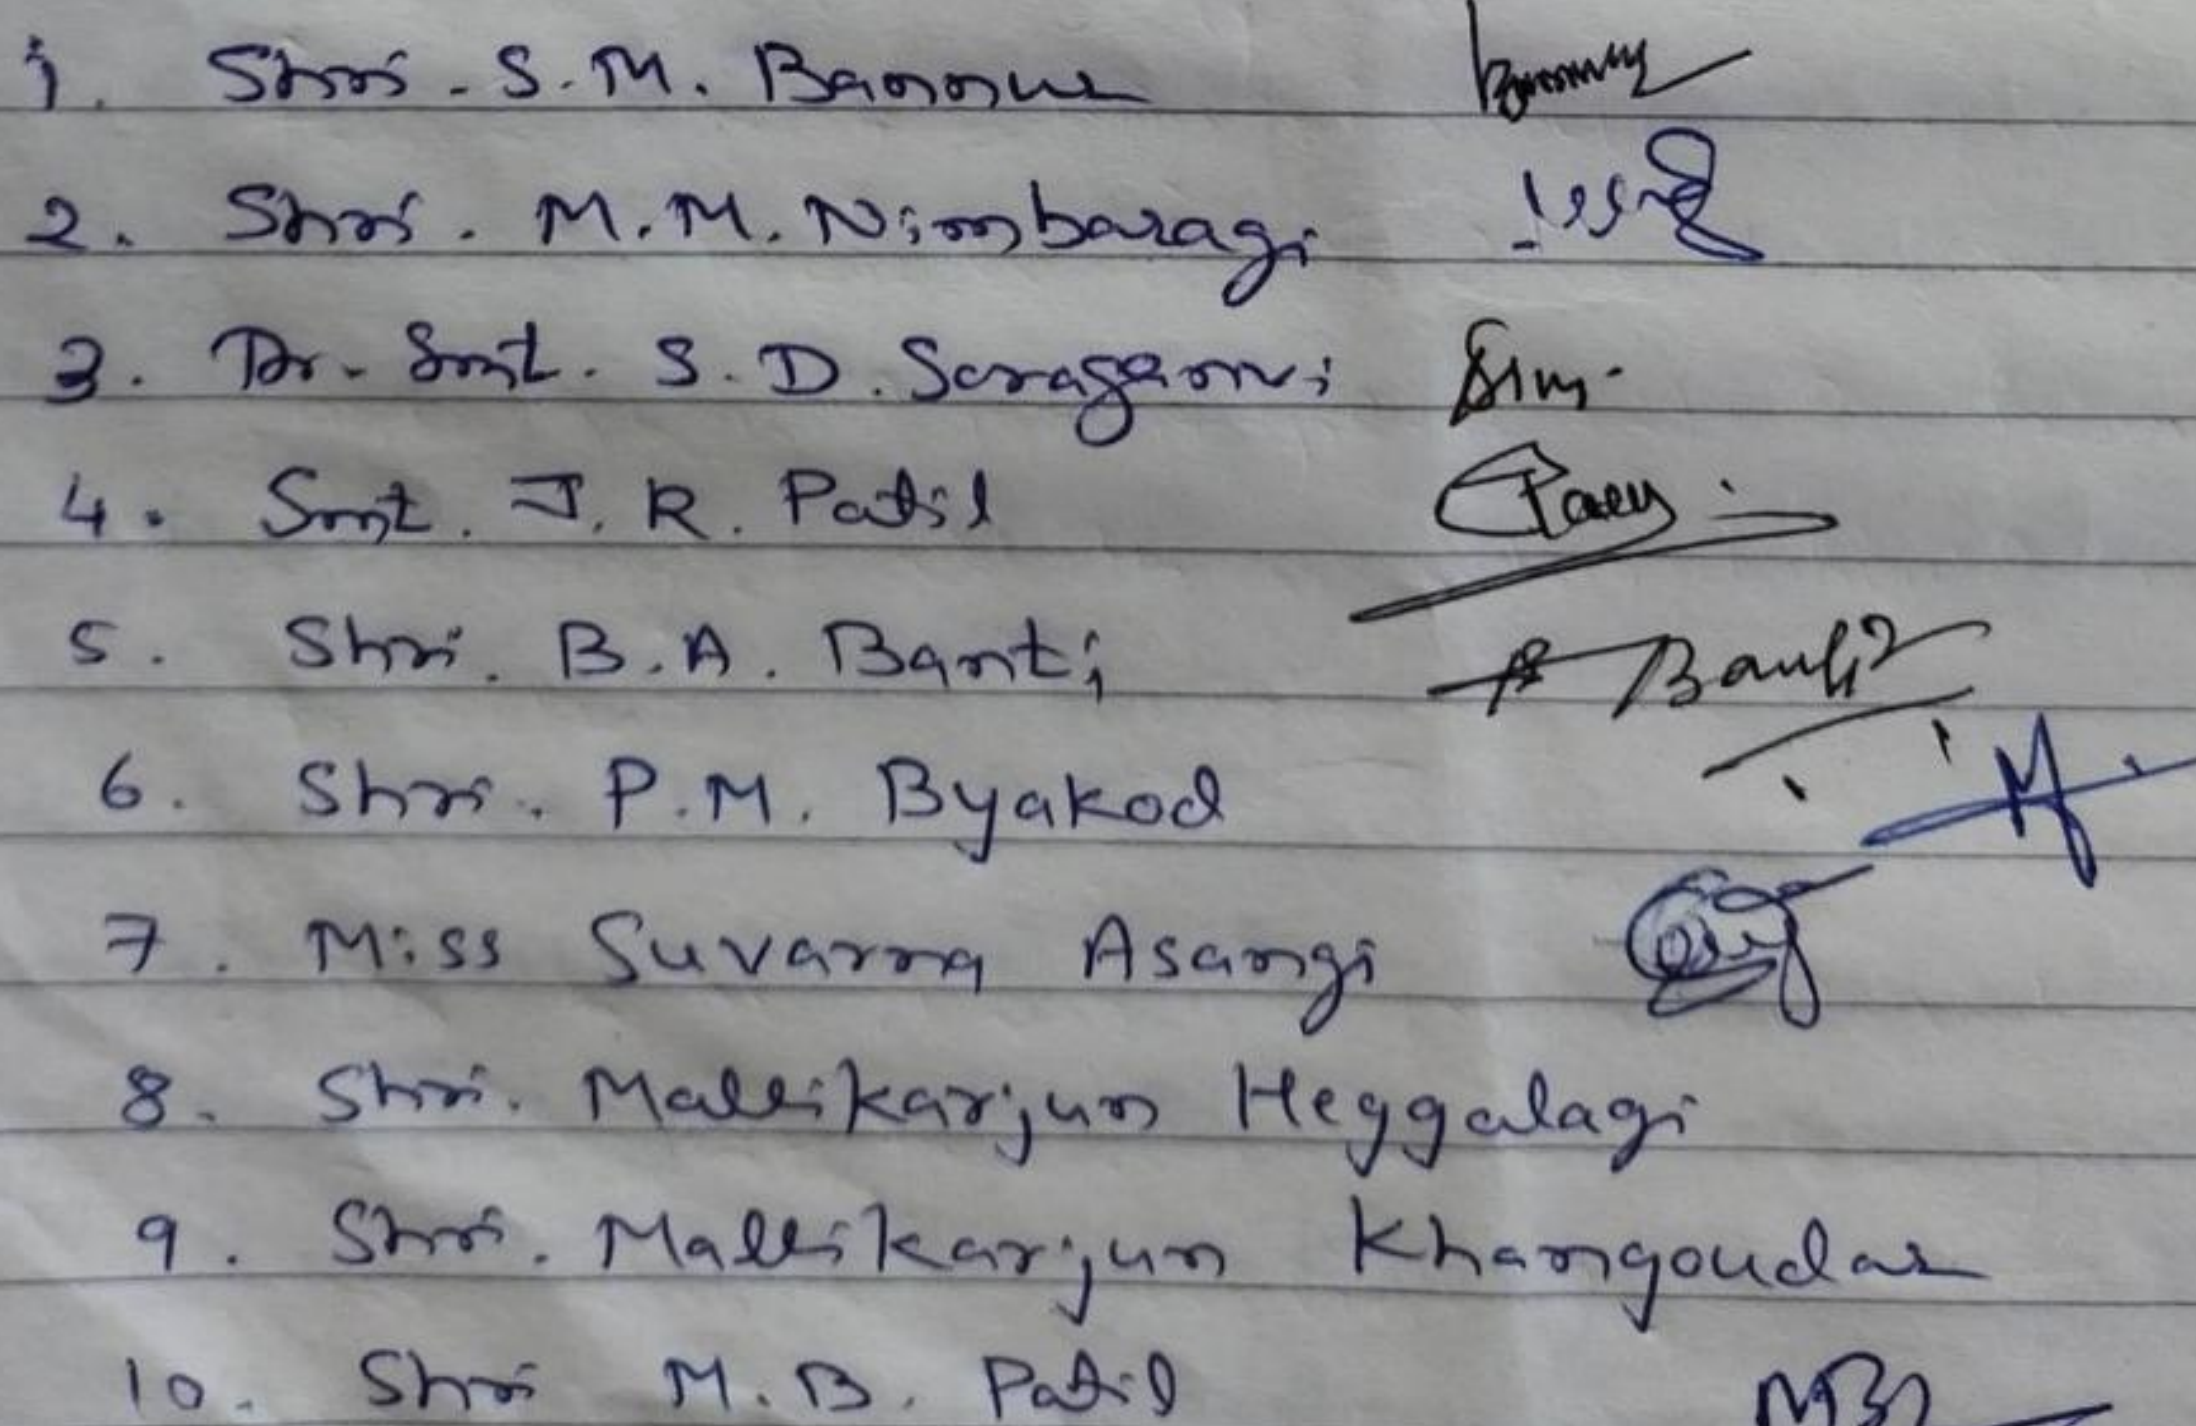 1. Shri. S. M. Bannur
2. Shri. M. M. Nimbaragi
3. Dr. Smt. S. D. Soraganvi
4. Smt. J. R. Patil
5. Shri. B. A. Banti
6. Shri. P. M. Byakod
7. Miss Suvarna Asangi
8. Shri. Mallikarjun Heggalagi
9. Shri. Mallikarjun Khangoudar
10. Shri M. B. Patil